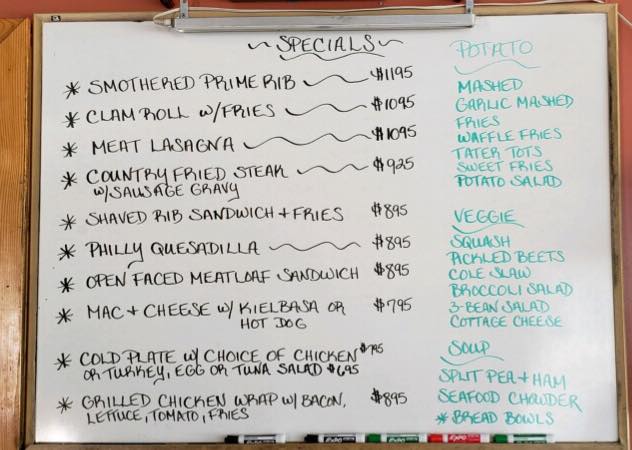 ~ SPECIALS ~
* SMOTHERED PRIME RIB $1195
* CLAM ROLL W/FRIES $1095
* MEAT LASAGNA $1095
* COUNTRY FRIED STEAK $925
W/SAUSAGE GRAVY
* SHAVED RIB SANDWICH + FRIES $895
* PHILLY QUESADILLA $895
* OPEN FACED MEATLOAF SANDWICH $895
* MAC + CHEESE W/ KIELBASA OR $795
HOT DOG
* COLD PLATE W/ CHOICE OF CHICKEN $795
OR TURKEY, EGG OR TUNA SALAD $695
* GRILLED CHICKEN WRAP W/ BACON, $895
LETTUCE, TOMATO, FRIES
POTATO
MASHED
GARLIC MASHED
FRIES
WAFFLE FRIES
TATER TOTS
SWEET FRIES
POTATO SALAD
VEGGIE
SQUASH
PICKLED BEETS
COLE SLAW
BROCCOLI SALAD
3-BEAN SALAD
COTTAGE CHEESE
SOUP
SPLIT PEA + HAM
SEAFOOD CHOWDER
* BREAD BOWLS
EXPO
EXPO
EXPO